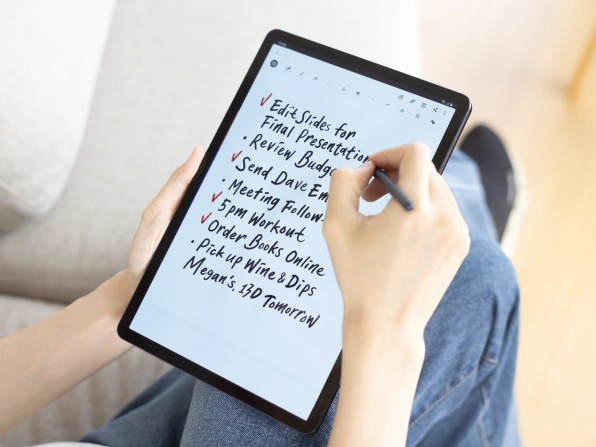 ✓ Edit Slides for
Final Presentation
• Review
✓ Send Dave
• Meeting Follow-
✓ 5pm Workout
✓ Order Books Online
• Pick up Wine & Dips
Megan's. 13D Tomorrow